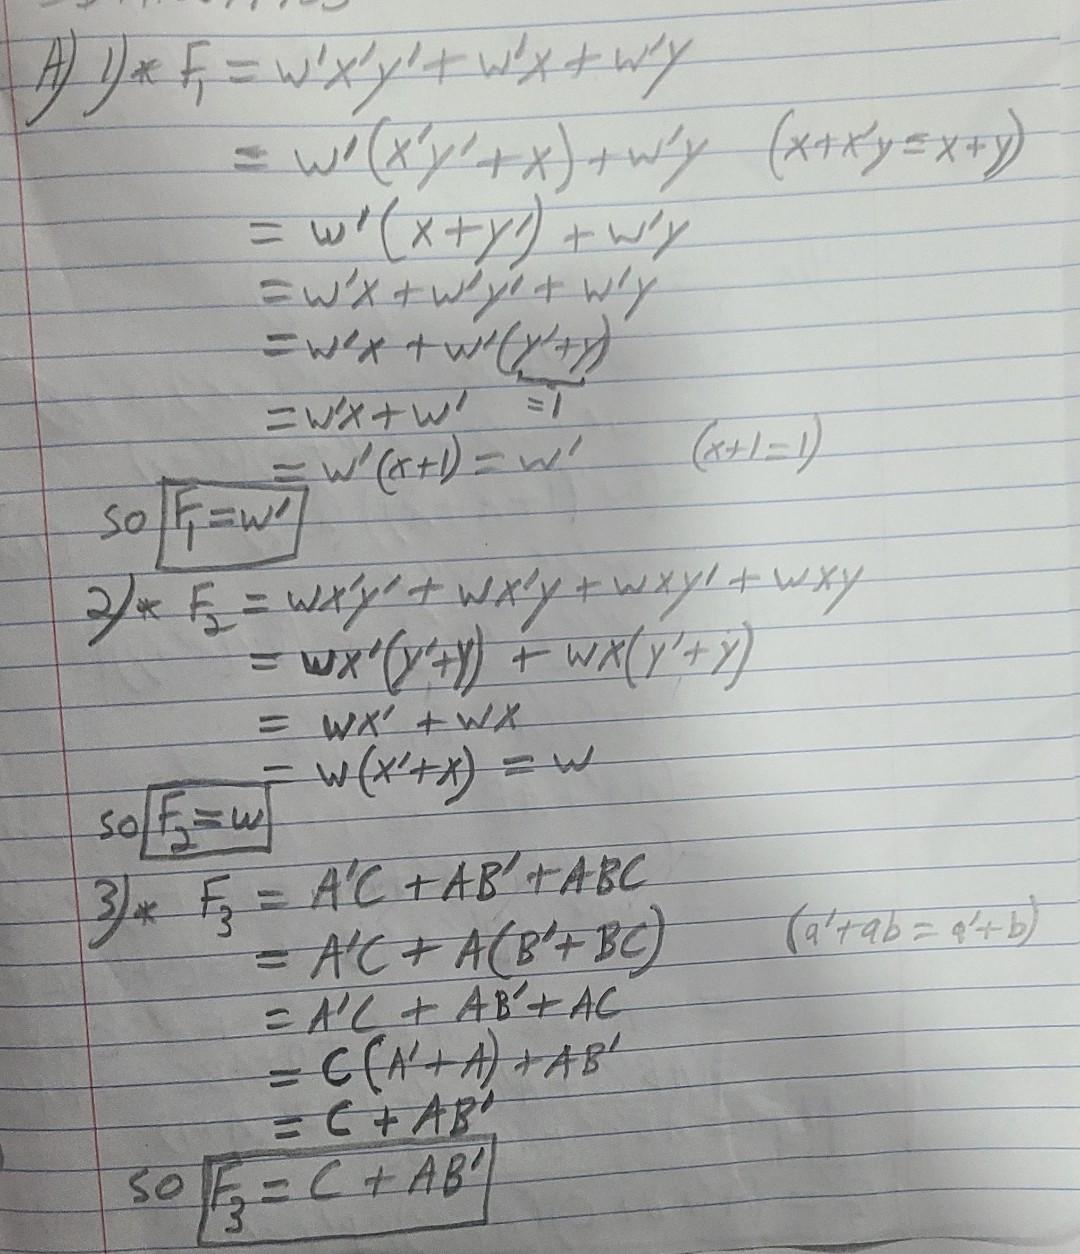 A) 1)* F₁ = w'x'y' + w'x + w'y
= w'(x'y' + x) + w'y (x+x'y = x+y)
= w'(x+y') + w'y
= w'x + w'y' + w'y
= w'x + w'(y'+y)
= w'x + w' =1
= w'(x+1) = w' (x+1=1)
so F₁ = w'
2)* F₂ = wx'y' + wx'y + wxy' + wxy
= wx'(y'+y) + wx(y'+y)
= wx' + wx
= w(x'+x) = w
so F₂ = w
3)* F₃ = A'C + AB' + ABC
= A'C + A(B' + BC) (a'+ab = a'+b)
= A'C + AB' + AC
= C(A'+A) + AB'
= C + AB'
so F₃ = C + AB'